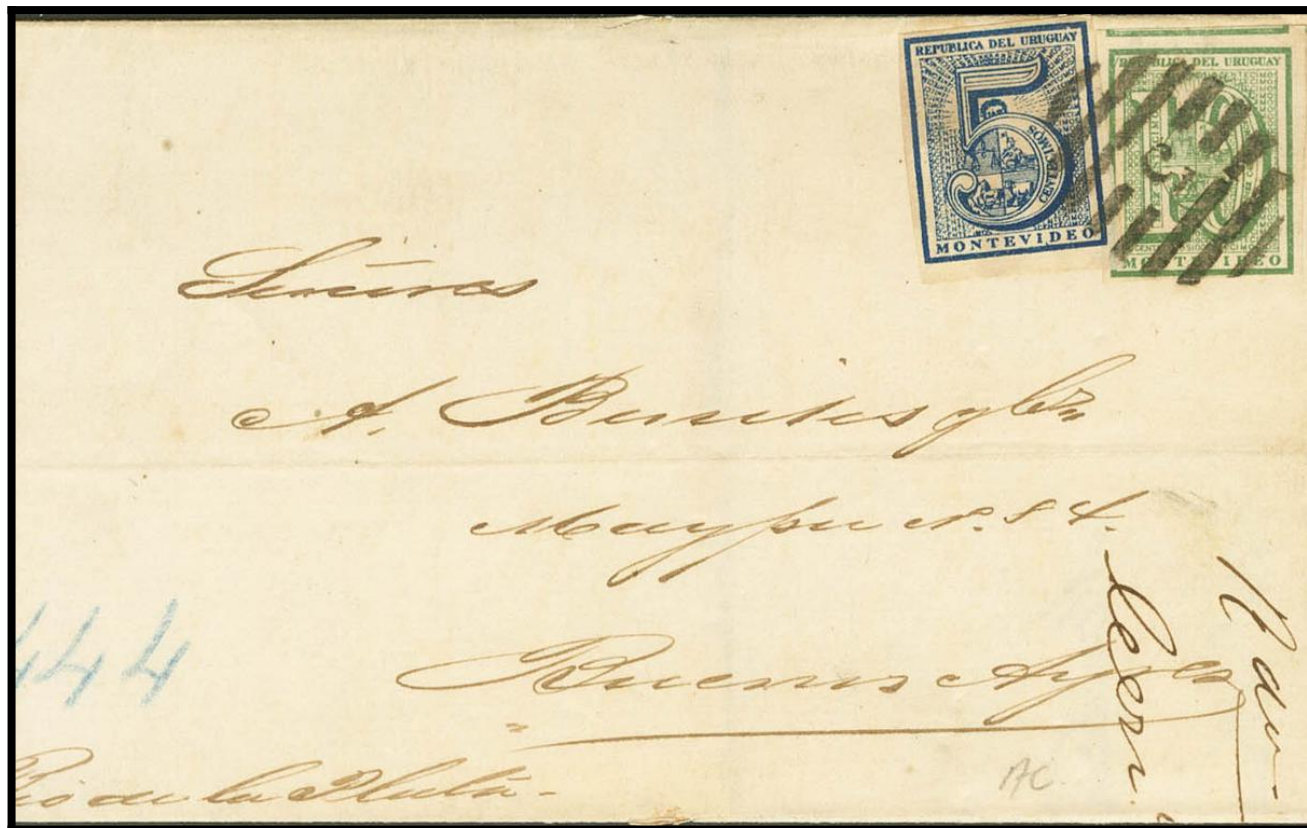 REPUBLICA DEL URUGUAY
5
CENTECIMOS
MONTEVIDEO
REPUBLICA DEL URUGUAY
10
MONTEVIDEO
3
Señores
A.
Maypu N. 84.
Buenos Ayres
444
Rio de la Plata
AC.